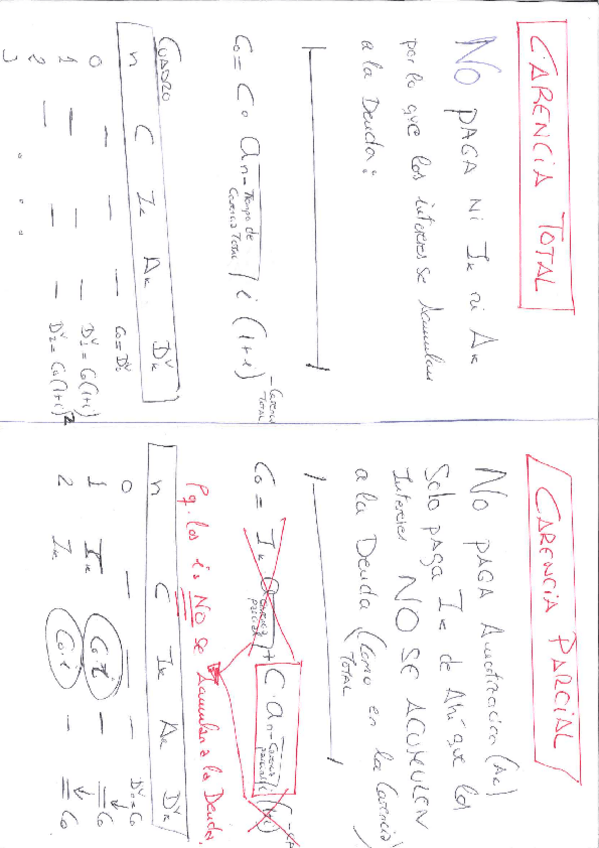 CARENCIA TOTAL
NO PAGA NI Ik ni Ak
por lo que los intereses se Acumulan
a la Deuda:
Co = Co a n-Tiempo de Carencia TOTAL i (1+i) -Carencia TOTAL
CUADRO
n C Ik Ak DVk
0 — — — Co=DVo
1 — — — DV1=Co(1+i)
2 — — — DV2=Co(1+i)2
3
CARENCIA PARCIAL
NO PAGA Amortización (Ak)
Solo paga Ik de Ahí que los
Intereses NO SE ACUMULEN
a la Deuda (Como en la Carencia TOTAL)
Co = Ik a carencia parcial + C a n-Carencia parcial i (1+i)
Pq. los i's NO se Acumulan a la Deuda
n C Ik Ak DVk
0 — — — DVo=Co
1 Ik Co.i — = Co
2 Ik Co.i — = Co